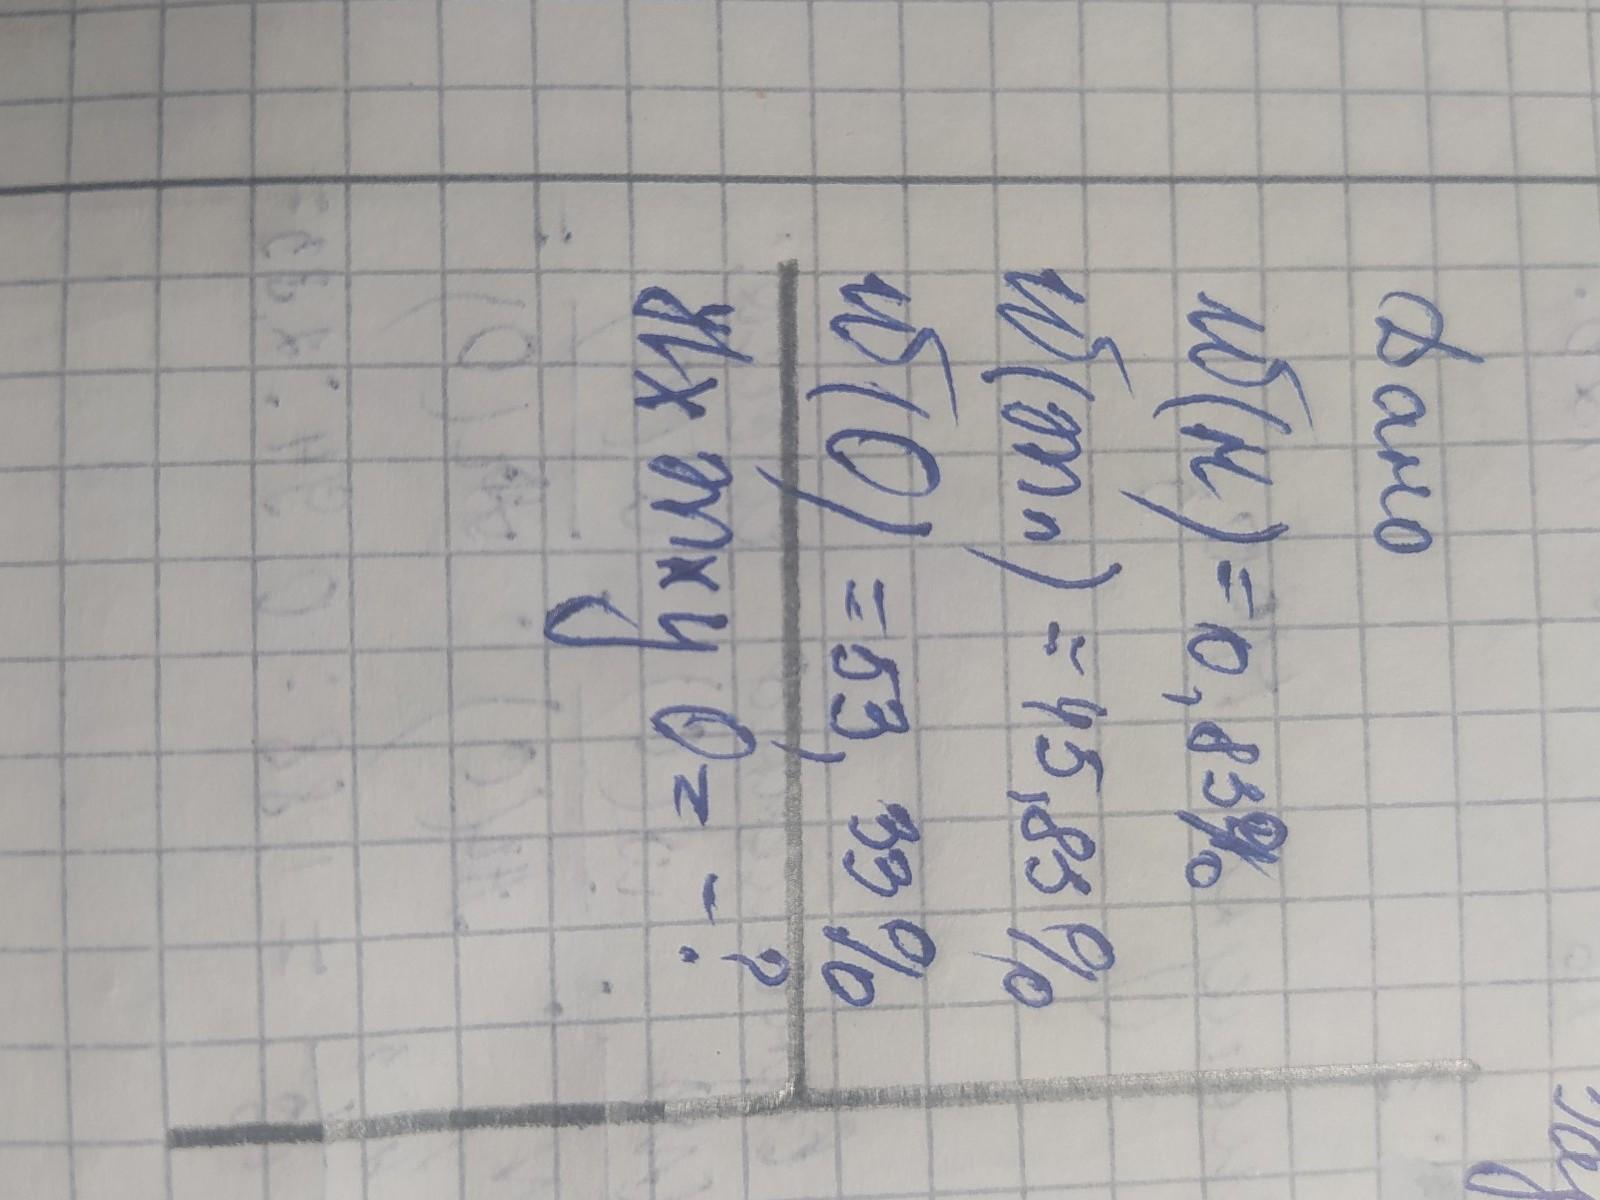 Дано
W(H) = 0,83%
W(Mn) = 45,83%
W(O) = 53,33%
HxMnyOz - ?